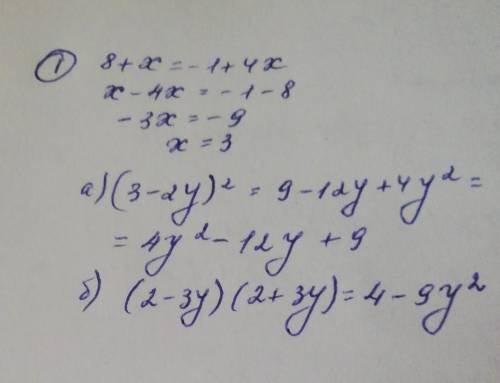 ① 8 + x = - 1 + 4x
x - 4x = - 1 - 8
- 3x = - 9
x = 3
а) (3 - 2y)² = 9 - 12y + 4y² =
= 4y² - 12y + 9
б) (2 - 3y) (2 + 3y) = 4 - 9y²